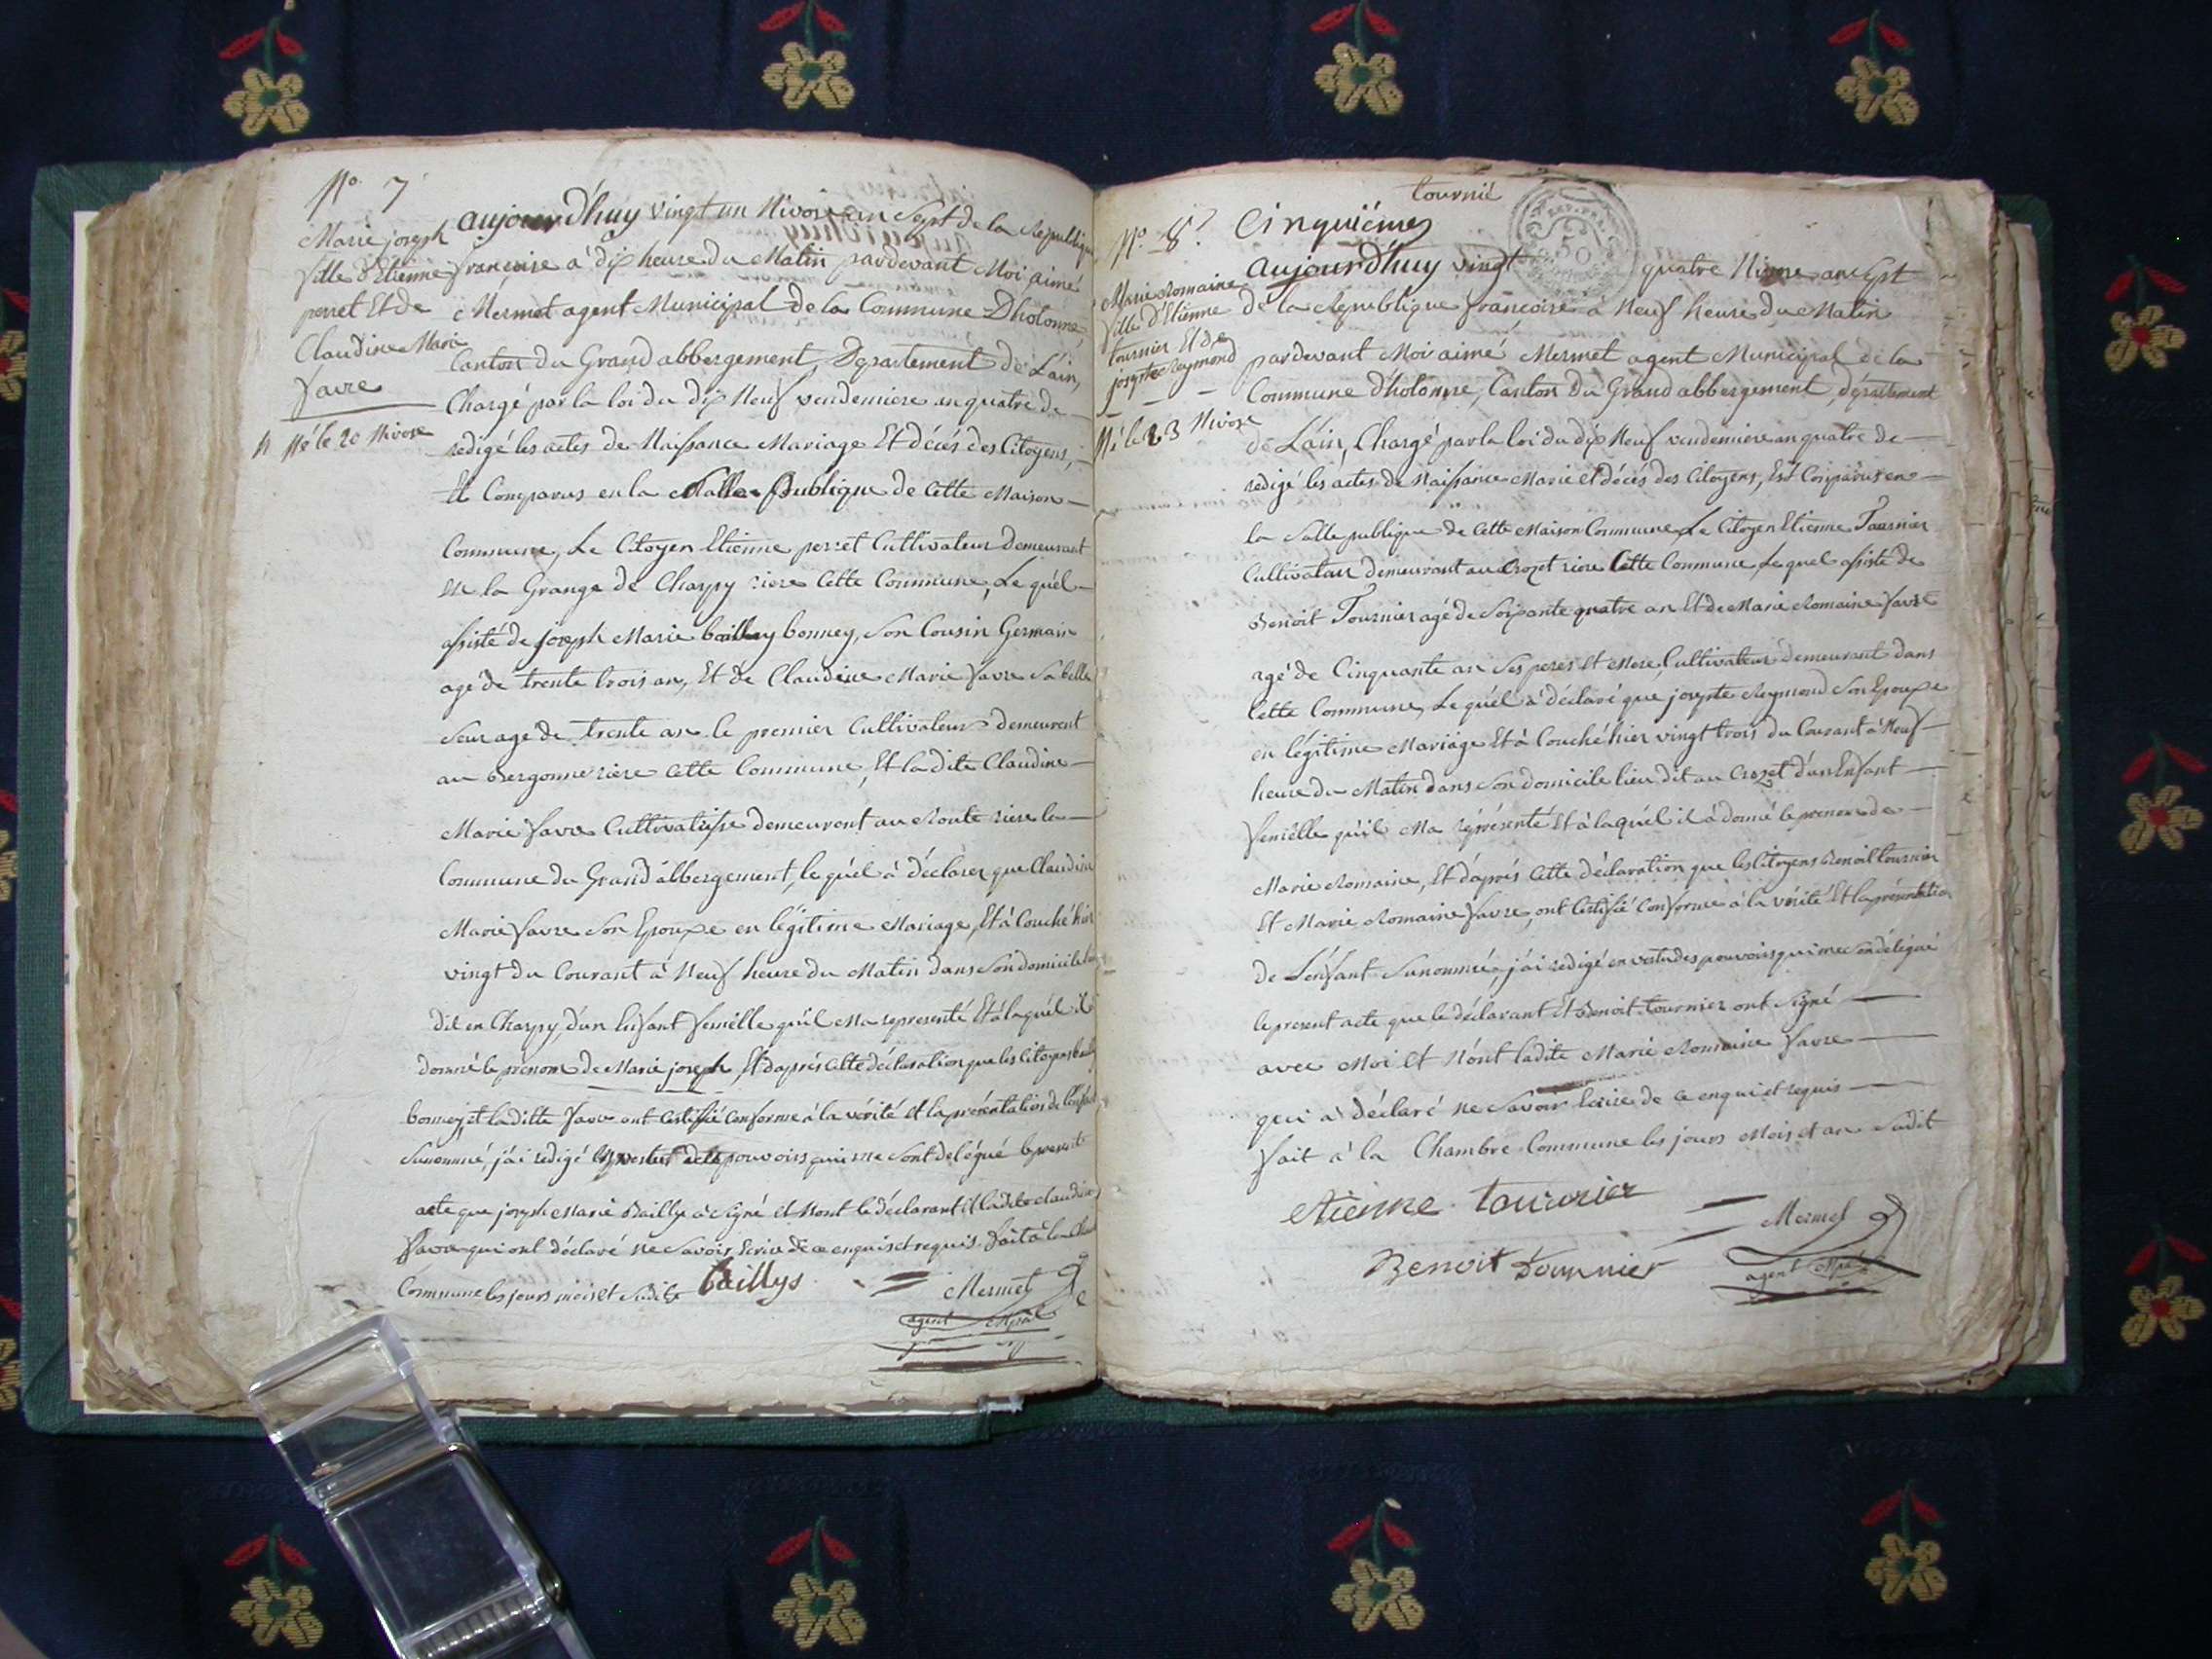 N.o 7
Marie joseph
fille d'Etienne
perret Et de
Claudine Marie
favre
N Né le 20 Nivose
aujourd'huy vingt un Nivose an Sept de la Republique
françoise à dix heure du Matin pardevant Moi aimé
Mermet agent Municipal de la Commune D'hotonne,
Canton du Grand abbergement, Departement de L'ain,
Chargé par la loi du dix Neuf vendemiere an quatre de
redigé les actes de Naissance Mariage Et décés des Citoyens,
Et Comparus en la Salle Publique de Cette Maison
Commune, Le Citoyen Etienne perret Cultivateur demeurant
en la Grange de Charpy riere Cette Commune, Le quél
assisté de joseph Marie bailly bonney, Son Cousin Germain
agé de trente trois an, Et de Claudine Marie favre Sa belle
Seur agé de trente an le premier Cultivateur demeurent
au Bergonne riere Cette Commune, Et la dite Claudine
Marie favre Cultivatrisse demeurent au Route riere la
Commune du Grand abbergement, le quél à déclarer que Claudine
Marie favre Son Epouxe en légitime Mariage, Et à Couché hier
vingt du Courant à Neuf heure du Matin dans Son domicile lieu
dit en Charpy, d'un Enfant femélle qu'il Ma representé Et à laquél il
donné le prénom de Marie joseph, Et daprés Cette déclaration que les Citoyens bailly
bonney et la ditte favre ont Certiffié Conforme à la vérité et la présentation de l'enfant
Sunommé, j'ai redigé En vertus des pouvoirs qui me sont delégué le present
acte que joseph Marie Bailly à Signé et Nont le déclarant et la dite Claudine
favre qui ont déclaré ne Savoir Ecrire de ce enquis et requis. fait à la Ch
Commune les jours mois et Sudite baillys Mermet
agent Mpal
tournié
N.o 8.
Marie Romaine
fille d'Etienne
tournier Et de
josepte Reymond
Né le 23 Nivose
Cinquiémes
aujourd'huy vingt quatre Nivose an Sept
de la République françoise à Neuf heure du Matin
pardevant Moi aimé Mermet agent Municipal de la
Commune D'hotonne, Canton du Grand abbergement, département
de L'ain, Chargé par la loi du dix Neuf vendemiere an quatre de
redigé les actes de Naissance Marié et décés des Citoyens, Est Comparus en
la Salle publique de Cette Maison Commune Le Citoyen Etienne Tournier
Cultivateur demeurant au Crozet riere Cette Commune Le quel assisté de
Benoit Tournier agé de Soixante quatre an Et de Marie Romaine favre
agé de Cinquante an Ses peres et Mere, Cultivateur demeurant dans
Cette Commune, Le quél à déclaré que josepte Reymond Son Epouxe
en légitime Mariage Et à Couché hier vingt trois du Courant à Neuf
heure du Matin dans Son domicile lieu dit au Crozet d'un Enfant
femélle qu'il Ma réprésenté Et à laquél il à donné le prenom de
Marie Romaine, Et d'aprés Cette déclaration que les Citoyens Benoit tournier
Et Marie Romaine favre, ont Certifié Conforme à la vérité Et la présentation
de L'enfant Sunommé, j'ai redigé en vertu des pouvoirs qui me son délégué
le present acte que le déclarant Et Benoit tournier ont Signé
avec Moi et Nont ladite Marie Romaine favre
qui à déclaré ne Savoir Ecrire de ce enquis et requis
fait à la Chambre Commune les jours Mois et an Sudit
etienne tournier
Mermet
Benoit tournier
agent Mpal